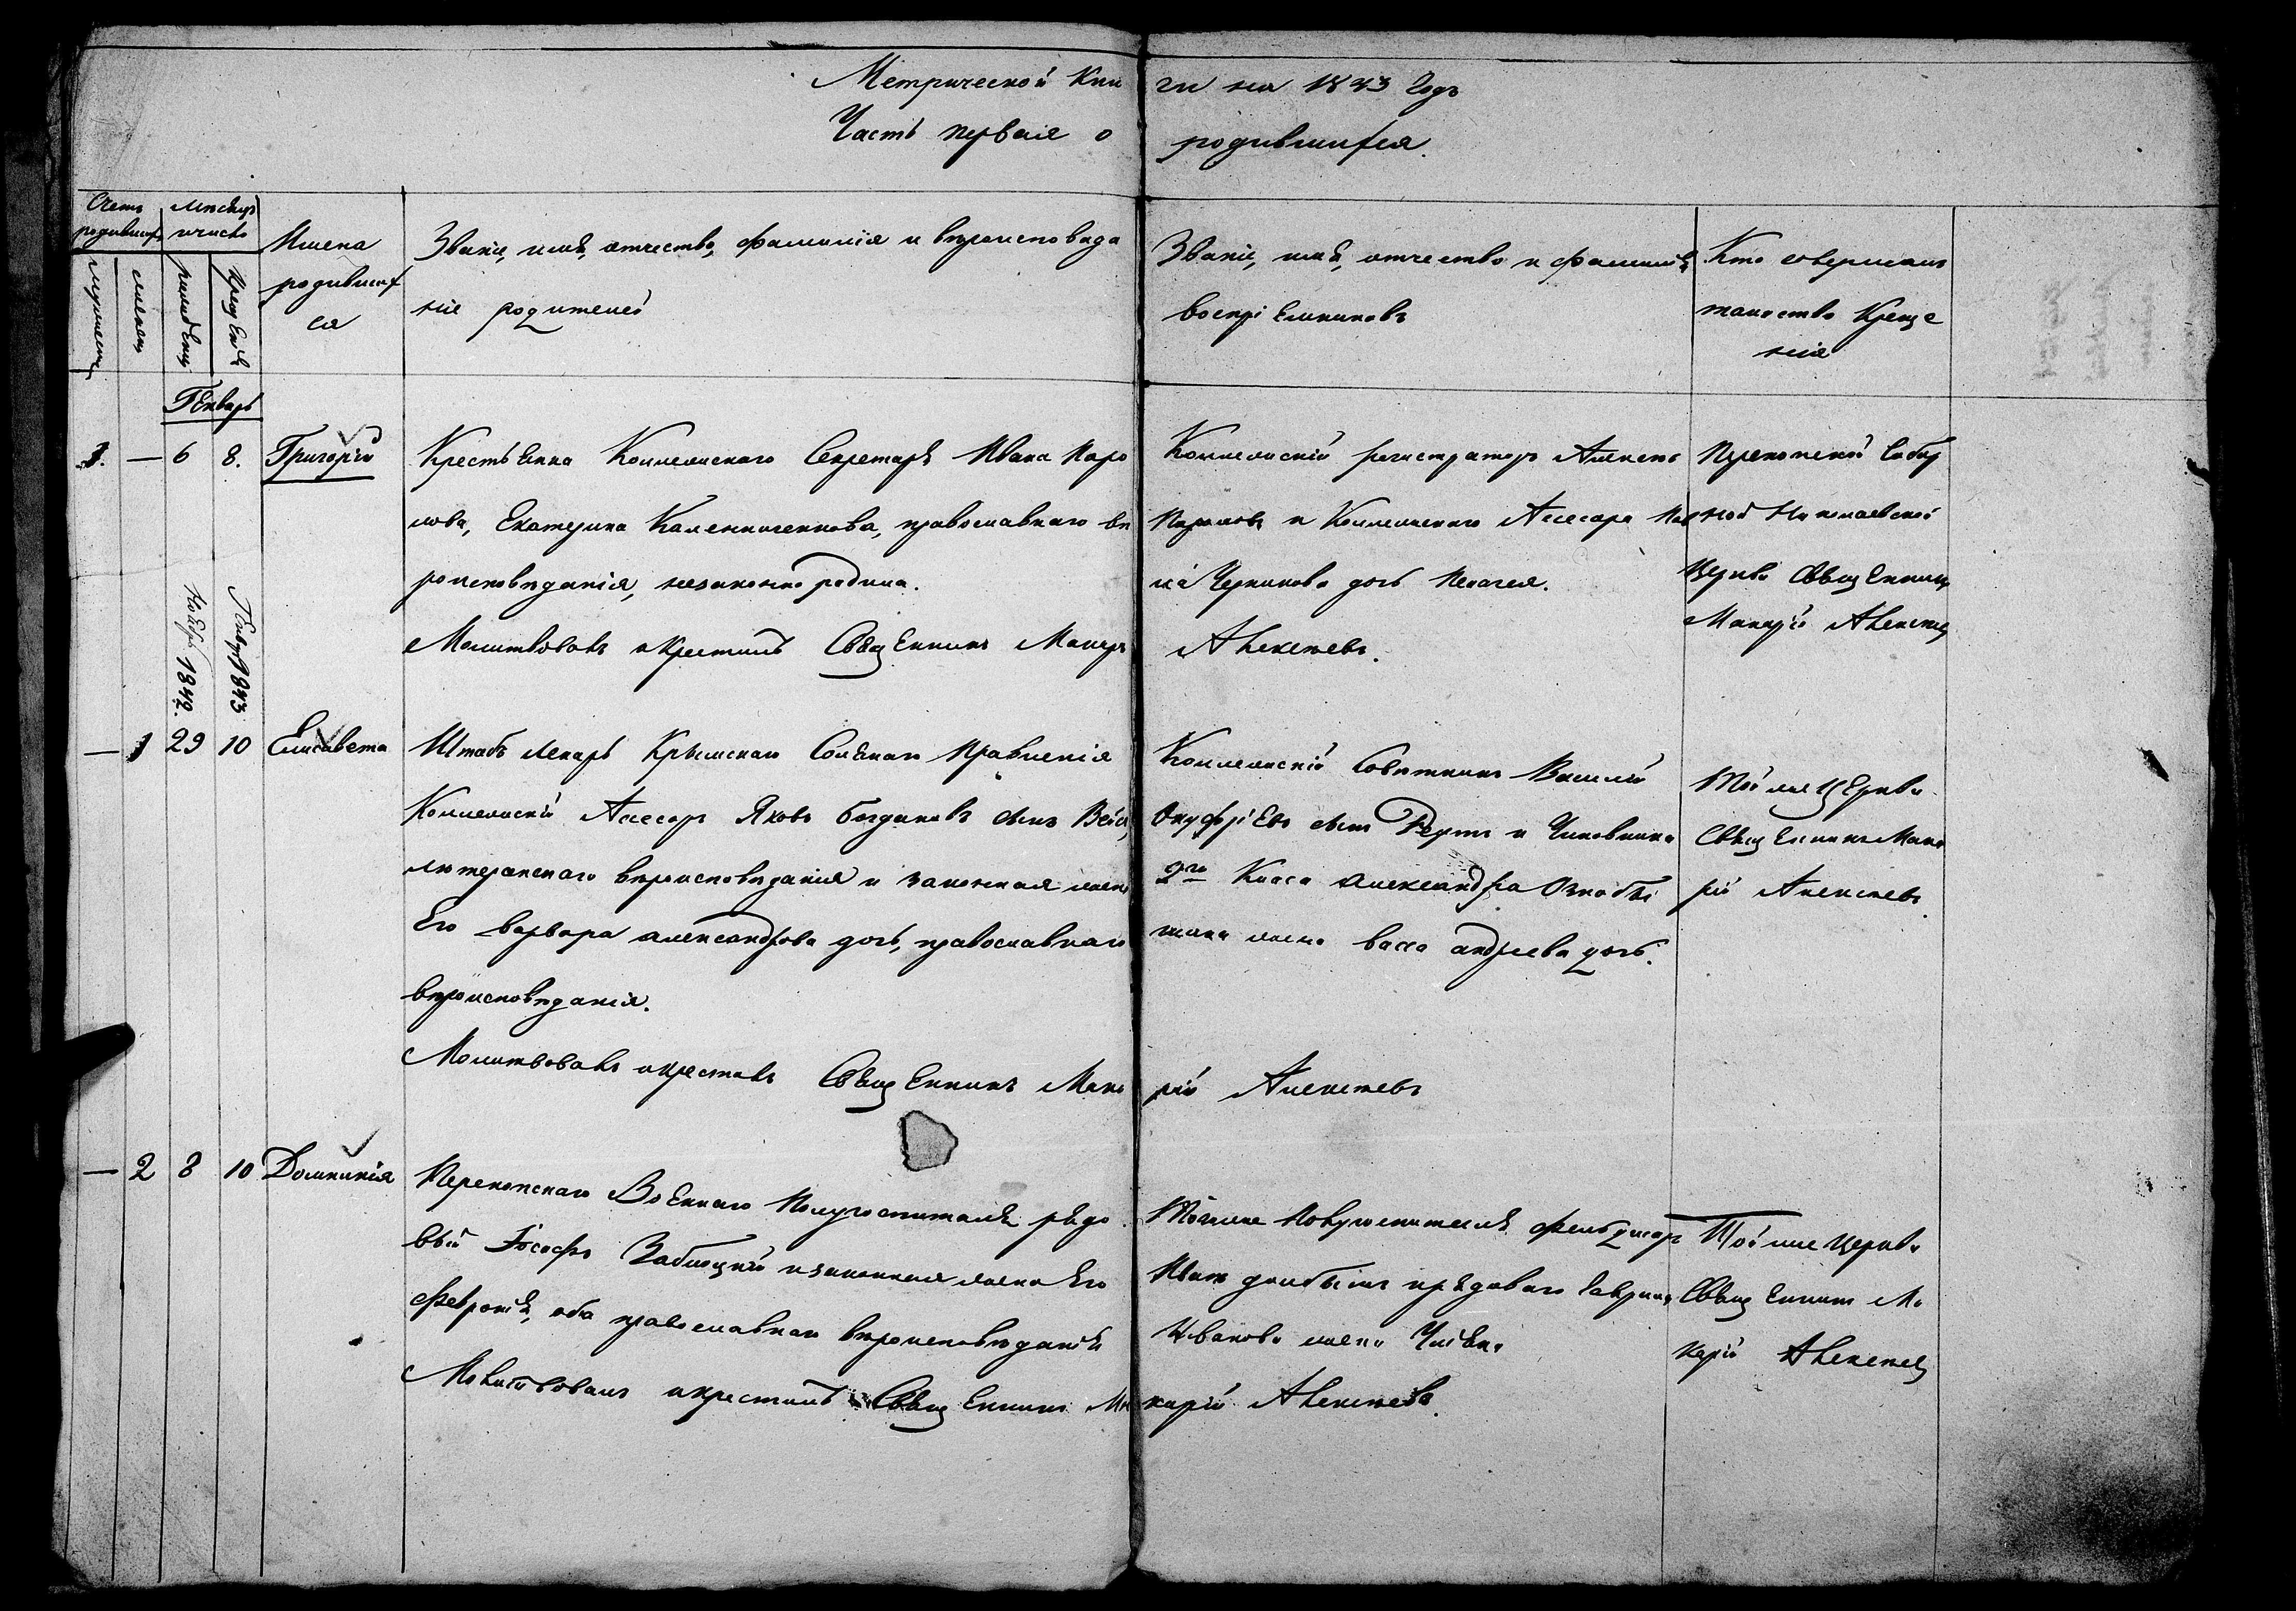 Метрической Кни ги на 1843 Годъ
Часть первая о родившихся.
Счетъ родившихся
Месяцъ и число
мужеска
женска
рожденія
крещенія
Имена
родивших
ся
Званіе, имя, отчество, фамилія и вѣроисповѣда
ніе родителей
Званіе, имя, отчество и фамилія
воспріемниковъ
Кто совершалъ
таинство Креще
нія
Генварь
1. — 6 8. Григорій
Крестьянка Коллежскаго Секретаря Ивана Каро
лова, Екатерина Каленниченкова, православнаго вѣ
роисповѣданія, незаконно родила.
Молитвовалъ и крестилъ Священникъ Макарій
Коллежскій регистраторъ
и Коллежскаго Асесора
Черникова дочь Пелагея.
Алексѣевъ.
Перекопской Собор
ной Николаевской
Церкви Священникъ
Макарій Алексѣевъ
Ноября 1842.
Генваря 1843
— 1 29 10 Елисавета
Штабъ Лекарь Крымскаго Солянаго Правленія
Коллежскій Асессоръ Яковъ Богдановъ сынъ
лютеранскаго вѣроисповѣданія и законная жена
Его Варвара александрова дочь, православнаго
вѣроисповѣданія.
Молитвовалъ и крестилъ Священникъ Мака
Коллежскій Совѣтникъ Василій
Онуфріевъ сынъ и Чиновника
9го Класса Александра Ознобы
шина жена васса андреева дочь.
рій Алексѣевъ
Той же Церкви
Священникъ Мака
рій Алексѣевъ
— 2 8 10 Домникія
Перекопскаго Военнаго Полугоспиталя рядо
вый Іосифъ Заблоцкій и законная жена Его
Февронія, оба православнаго вѣроисповѣданія
Молитвовалъ и крестилъ Священникъ Ма
Тогоже Полугоспиталя фельдшеръ
Иванъ и рядоваго
Иванова жена
карій Алексѣевъ.
Той же Церкви
Священникъ Ма
карій Алексѣевъ